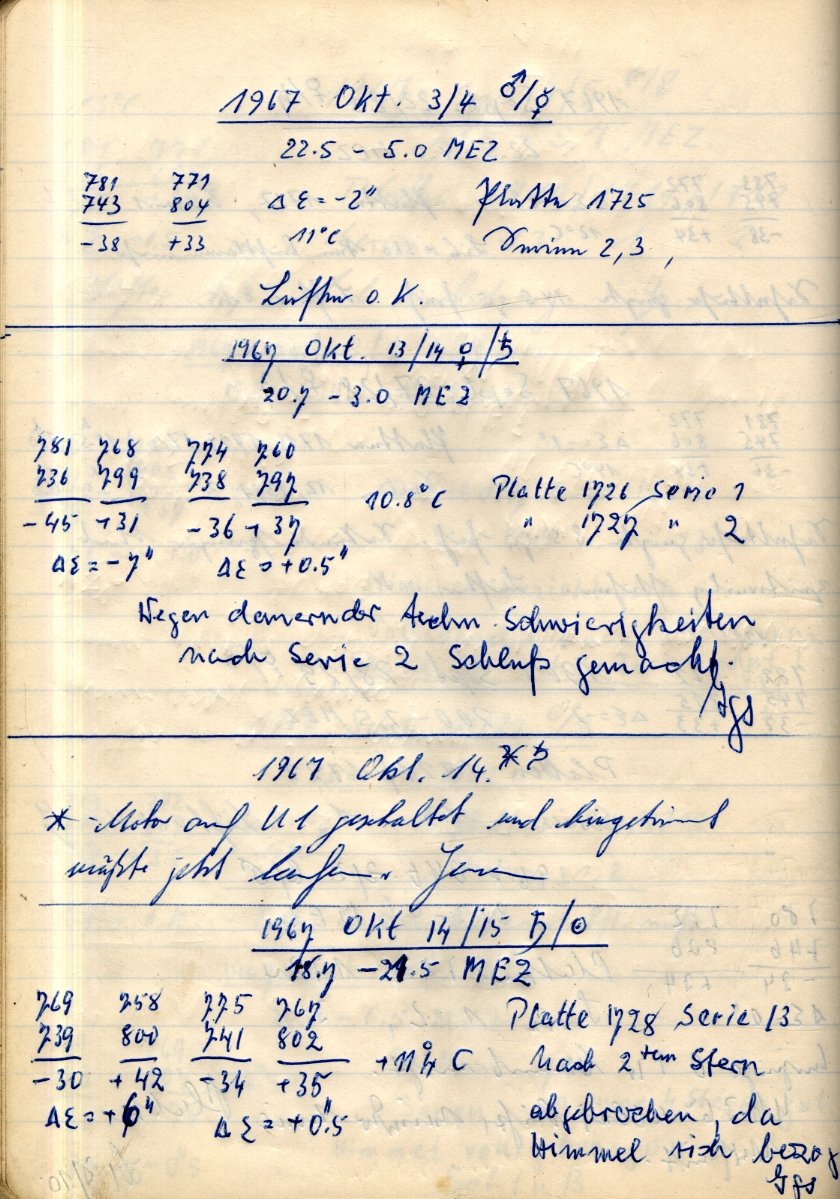 1967 Okt. 3/4 ♂/☿
22.5 – 5.0 MEZ
781 771
743 804 Δε = -2" Platte 1725
-38 +33 11°C 2, 3,
Lüfter o. K.
1967 Okt. 13/14 ♀/♄
20.7 – 3.0 MEZ
781 768 774 760
736 799 738 797 10.8°C Platte 1726 Serie 1
-45 +31 -36 +37 " 1727 " 2
Δε = -7" Δε = +0.5"
Wegen dauernder techn. Schwierigkeiten
nach Serie 2 Schluß gemacht.
Ggs
1967 Okt. 14. * ♄
* Motor auf U1 geschaltet und hingetrimmt
müßte jetzt laufen.
1967 Okt 14/15 ♄/☉
18.7 – 21.5 MEZ
769 758 775 767 Platte 1728 Serie 13
739 800 741 802 +11.4°C Nach 2tem Stern
-30 +42 -34 +35
Δε = +6" Δε = +0.5" abgebrochen, da
Himmel sich bezog
Ggs